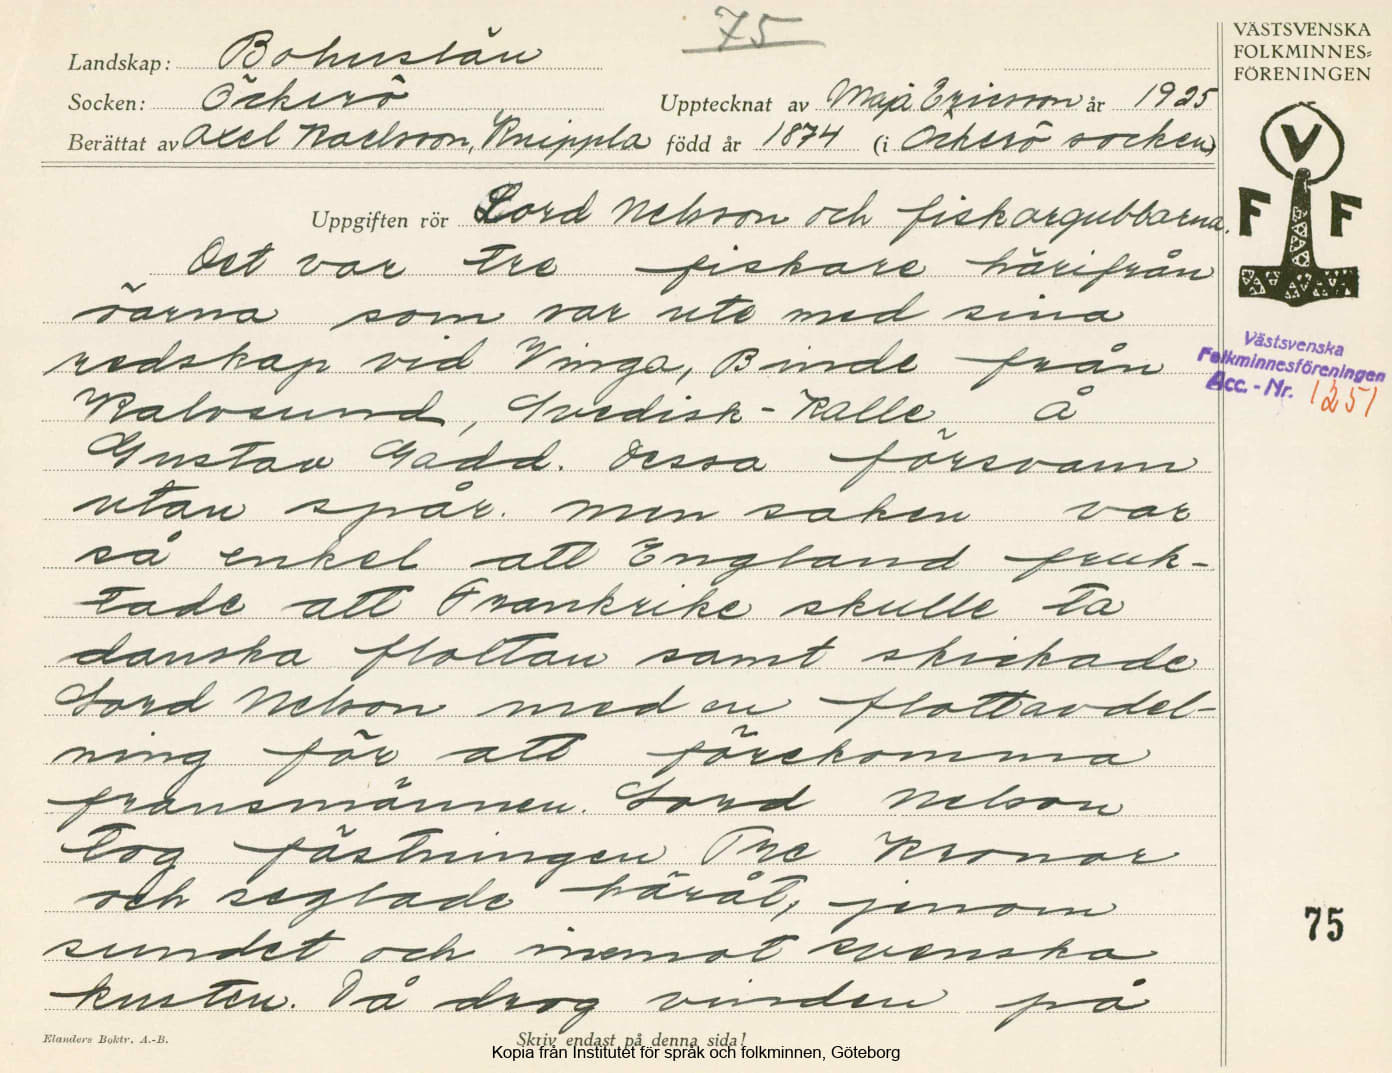 75
Landskap: Bohuslän
Socken: Öckerö
Upptecknat av Maja Ericson år 1925
Berättat av Axel Karlsson, Knippla född år 1874 (i Öckerö socken)
VÄSTSVENSKA
FOLKMINNES=
FÖRENINGEN
V
F F
Uppgiften rör Lord Nelson och fiskargubbarna.
Det var tre fiskare härifrån
öarna som var ute med sina
redskap vid Vinga, Binde från
Kalvsund, Svedisk-Kalle å
Gustav Gadd. Dessa försvann
utan spår. men saken var
så enkel att England fruk-
tade att Frankrike skulle ta
danska flottan samt skickade
Lord Nelson med en flottavdel-
ning för att förekomma
fransmännen. Lord Nelson
tog fästningen Tre Kronor
och seglade häråt, jenom
sundet och inemot svenska
kusten. Då drog vinden på
Västsvenska
Folkminnesföreningen
Acc. - Nr. 1251
75
Elanders Boktr. A.-B.
Skriv endast på denna sida!
Kopia från Institutet för språk och folkminnen, Göteborg